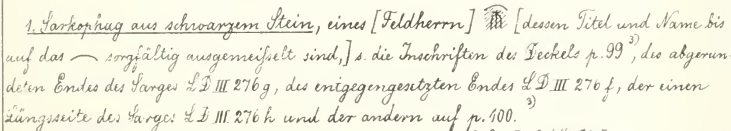 1. Sarkophag aus schwarzem Stein, eines [Feldherrn] [dessen Titel und Name bis
auf das sorgfältig ausgemeißelt sind,] s. die Inschriften des Deckels p. 99 3), des abgerun-
deten Endes des Sarges LD III 276 g, des entgegengesetzten Endes LD III 276 f, der einen
Längsseite des Sarges LD III 276 h und der andern auf p. 100. 3)